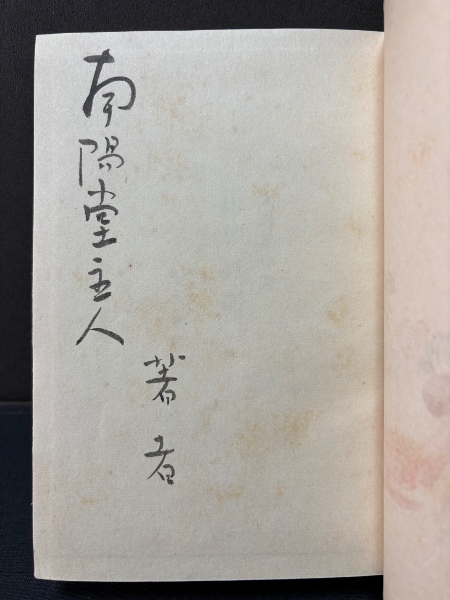 南陽堂主人
著者